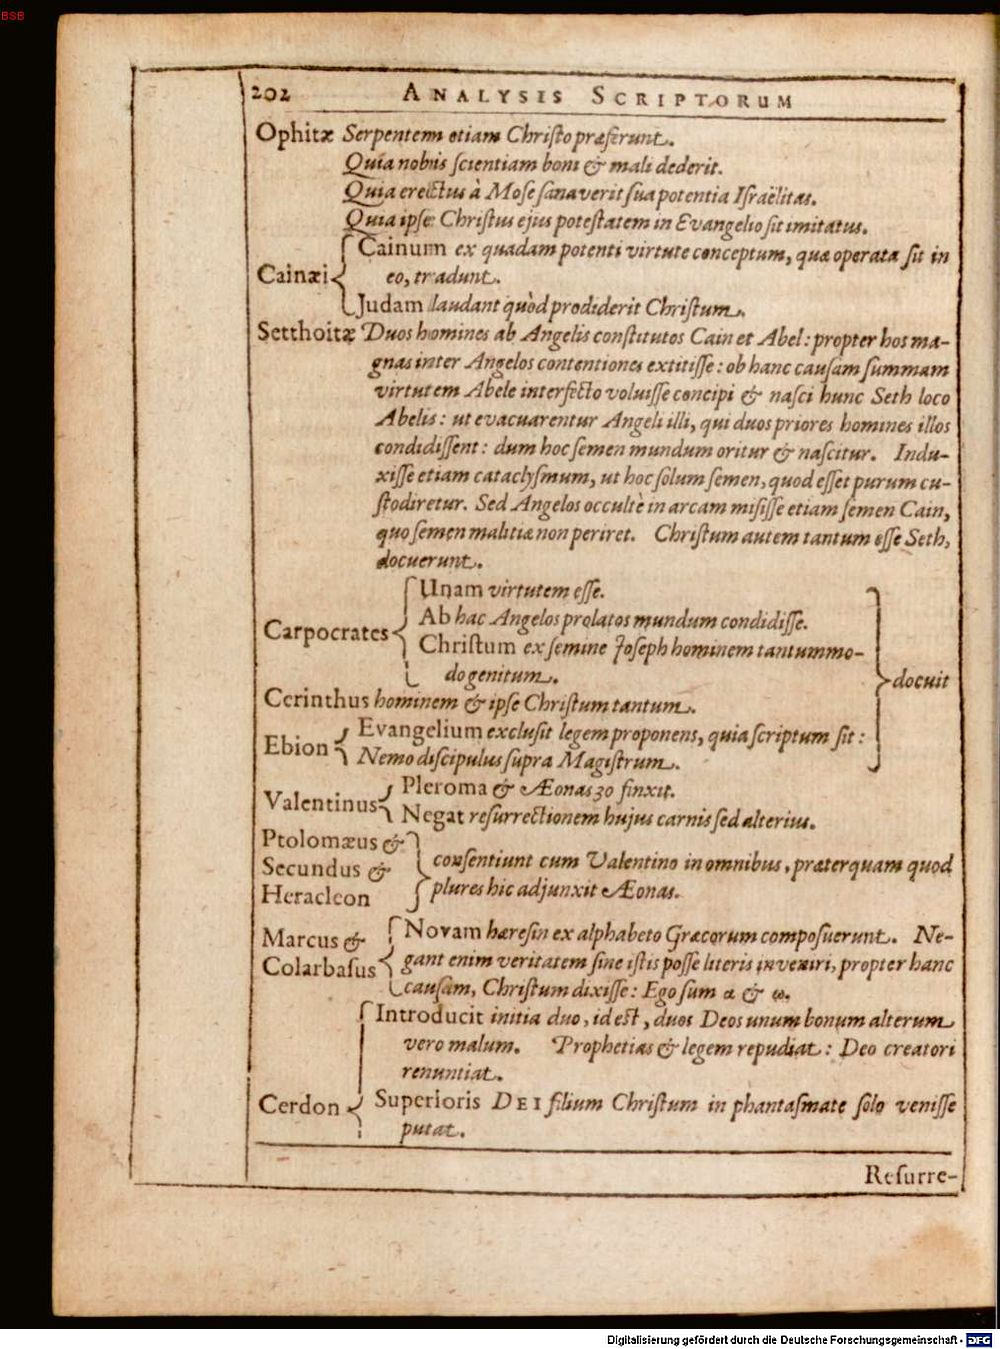 BSB
202 ANALYSIS SCRIPTORUM
Ophitæ Serpentem etiam Christo præferunt.
Quia nobis scientiam boni & mali dederit.
Quia erectus à Mose sanaverit sua potentia Israëlitas.
Quia ipse Christus ejus potestatem in Evangelio sit imitatus.
Cainum ex quadam potenti virtute conceptum, quæ operata sit in
Cainæi eo, tradunt.
Judam laudant quòd prodiderit Christum.
Setthoitæ Duos homines ab Angelis constitutos Cain et Abel: propter hos ma-
gnas inter Angelos contentiones extitisse: ob hanc causam summam
virtutem Abele interfecto voluisse concipi & nasci hunc Seth loco
Abelis: ut evacuarentur Angeli illi, qui duos priores homines illos
condidissent: dum hoc semen mundum oritur & nascitur. Indu-
xisse etiam cataclysmum, ut hoc solum semen, quod esset purum cu-
stodiretur. Sed Angelos occultè in arcam misisse etiam semen Cain,
quo semen malitiæ non periret. Christum autem tantum esse Seth,
docuerunt.
Unam virtutem esse.
Ab hac Angelos prolatos mundum condidisse.
Carpocrates Christum ex semine Joseph hominem tantummo-
do genitum.
docuit
Cerinthus hominem & ipse Christum tantum.
Ebion Evangelium exclusit legem proponens, quia scriptum sit:
Nemo discipulus supra Magistrum.
Valentinus Pleroma & Æonas 30 finxit.
Negat resurrectionem hujus carnis sed alterius.
Ptolomæus &
Secundus & consentiunt cum Valentino in omnibus, præterquam quod
Heracleon plures hic adjunxit Æonas.
Marcus & Novam hæresin ex alphabeto Græcorum composuerunt. Ne-
Colarbasus gant enim veritatem sine istis posse literis inveniri, propter hanc
causam, Christum dixisse: Ego sum α & ω.
Introducit initia duo, id est, duos Deos unum bonum alterum
vero malum. Prophetias & legem repudiat: Deo creatori
renuntiat.
Cerdon Superioris DEI filium Christum in phantasmate solo venisse
putat.
Resurre-
Digitalisierung gefördert durch die Deutsche Forschungsgemeinschaft - DFG